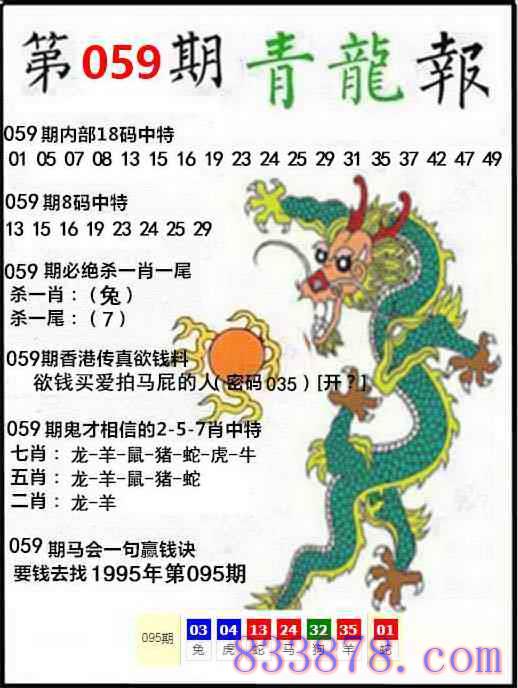 第059期 青龍報
059期内部18码中特
01 05 07 08 13 15 16 19 23 24 25 29 31 35 37 42 47 49
059期8码中特
13 15 16 19 23 24 25 29
059 期必绝杀一肖一尾
杀一肖：（兔）
杀一尾：（7）
059期香港传真欲钱料
欲钱买爱拍马屁的人(密码035）[开？]
059期鬼才相信的2-5-7肖中特
七肖：龙-羊-鼠-猪-蛇-虎-牛
五肖：龙-羊-鼠-猪-蛇
二肖：龙-羊
059期马会一句赢钱诀
要钱去找1995年第095期
095期 03 04 13 24 32 35 01
兔 虎 蛇 马 狗 羊 蛇
833878.com